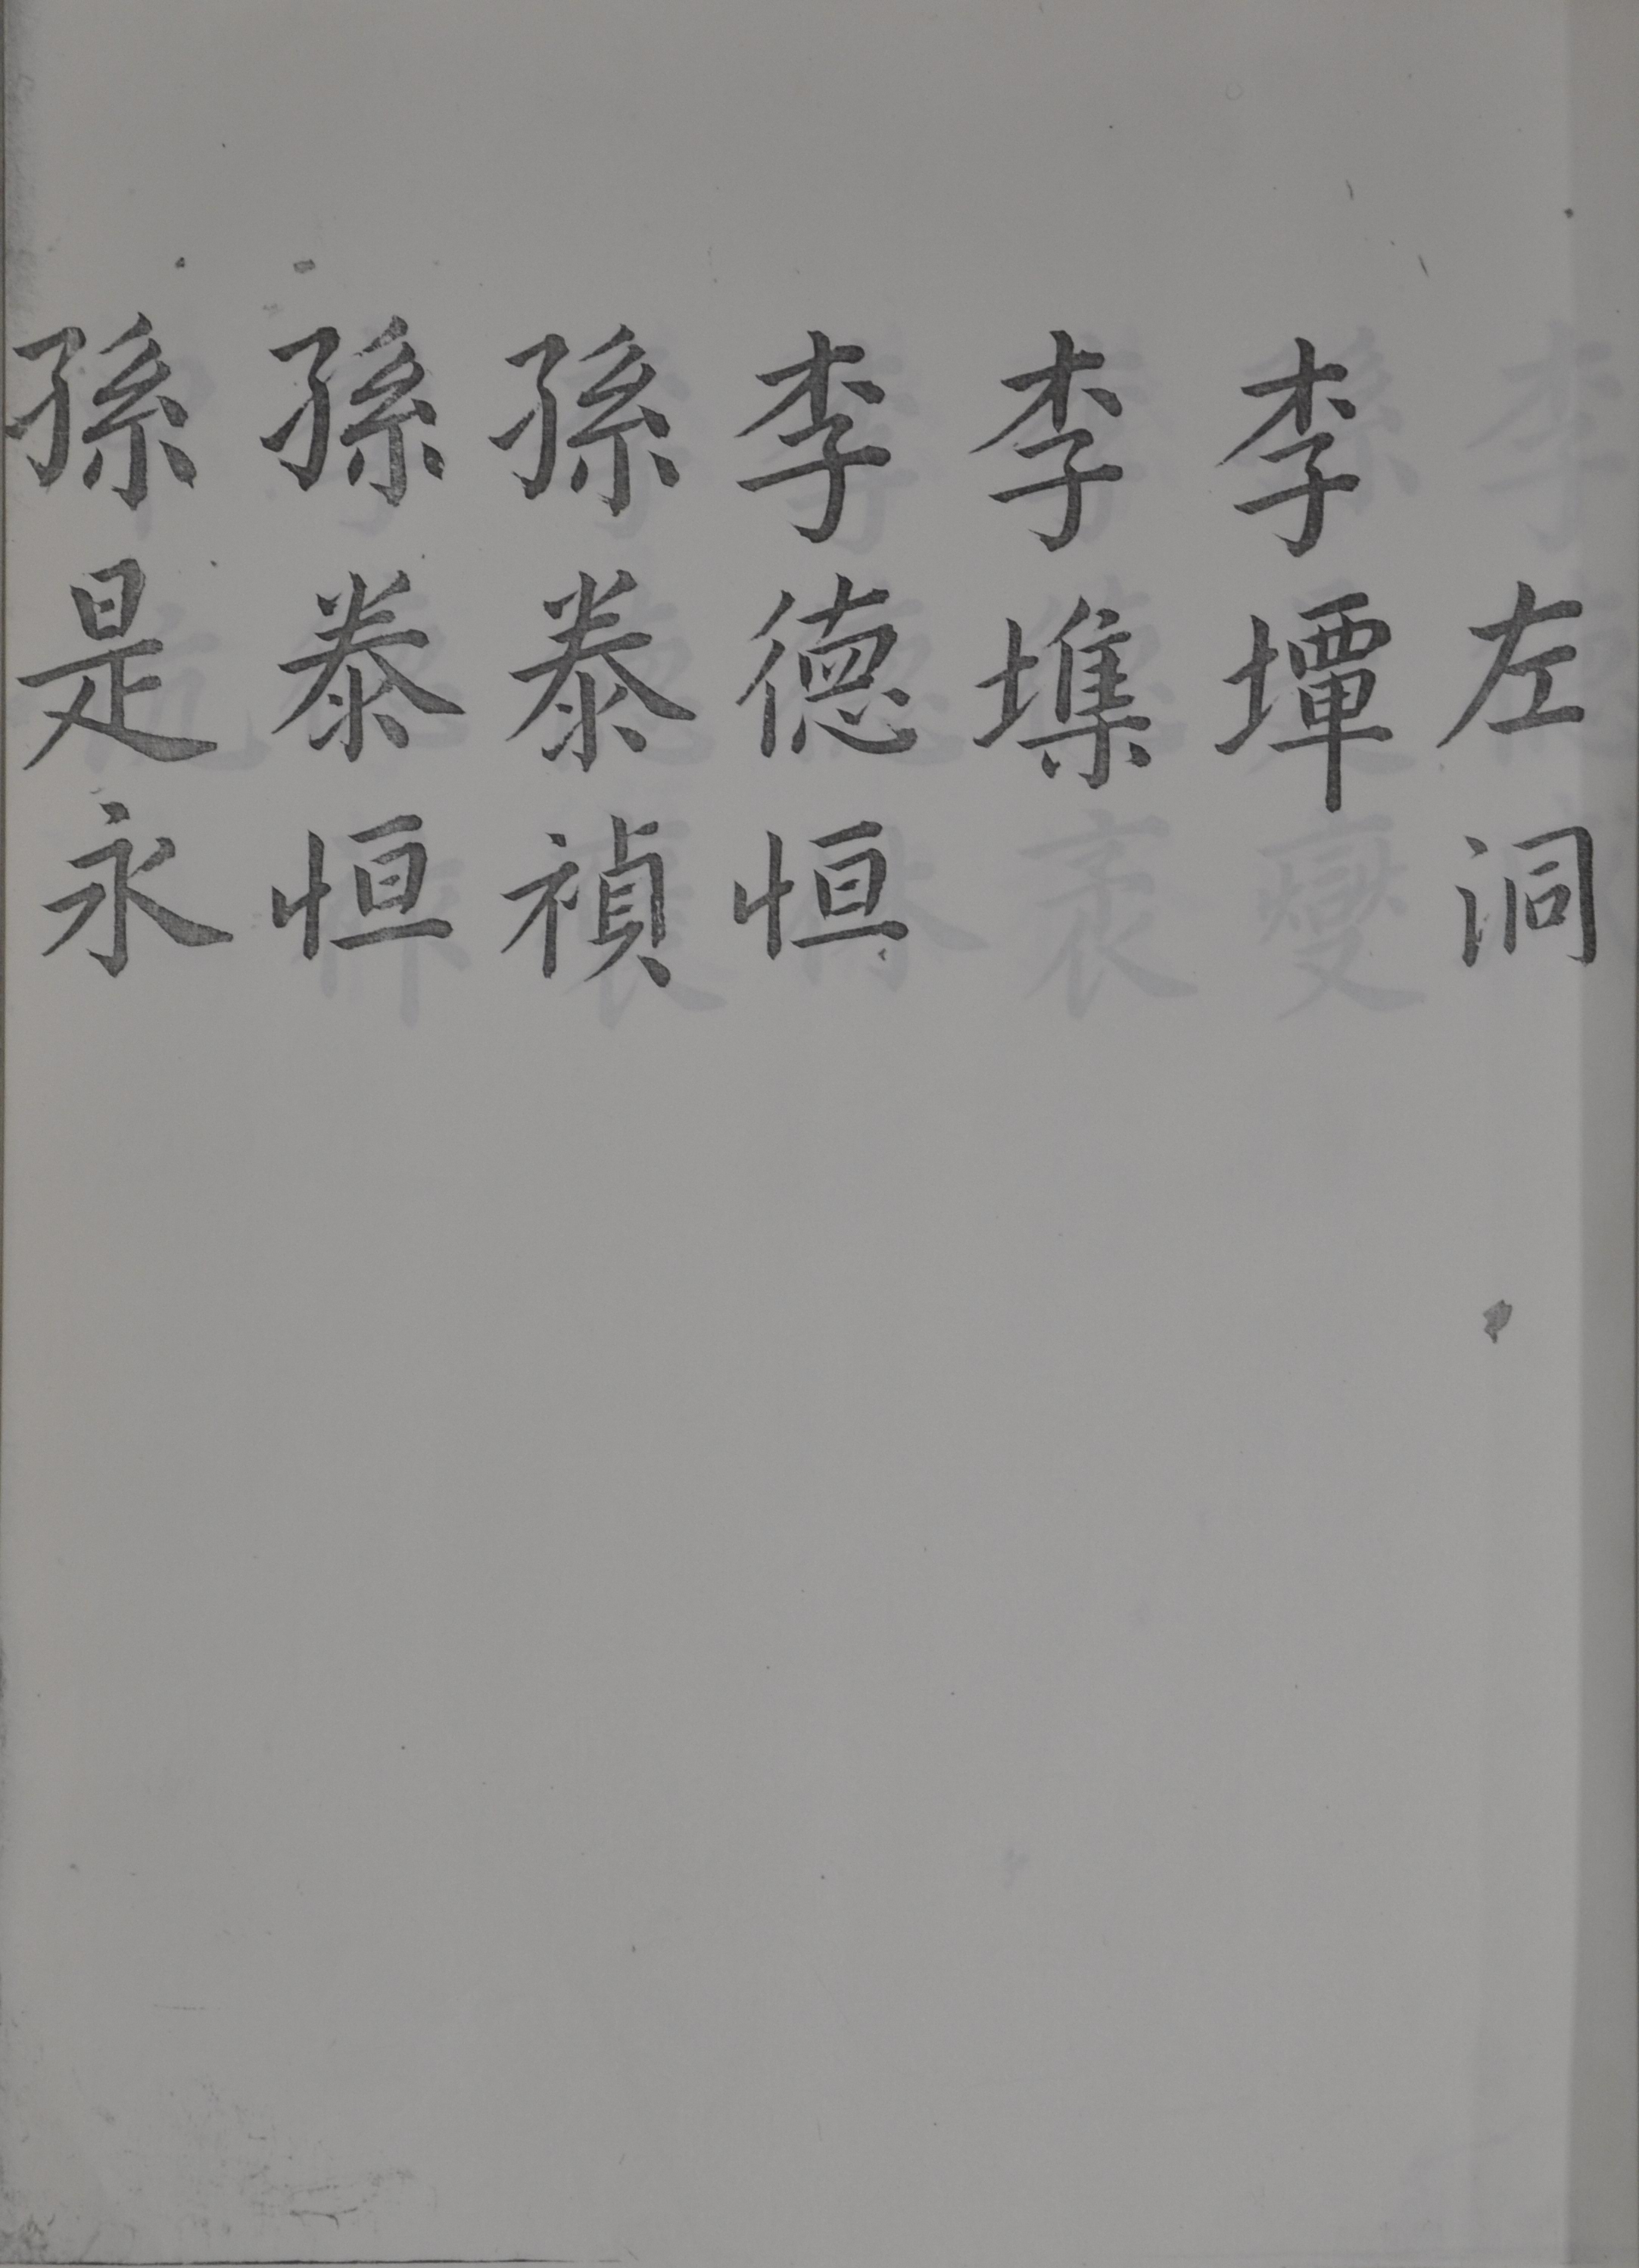 左洞
李墰
李㙫
李德恒
孫泰禎
孫泰恒
孫是永